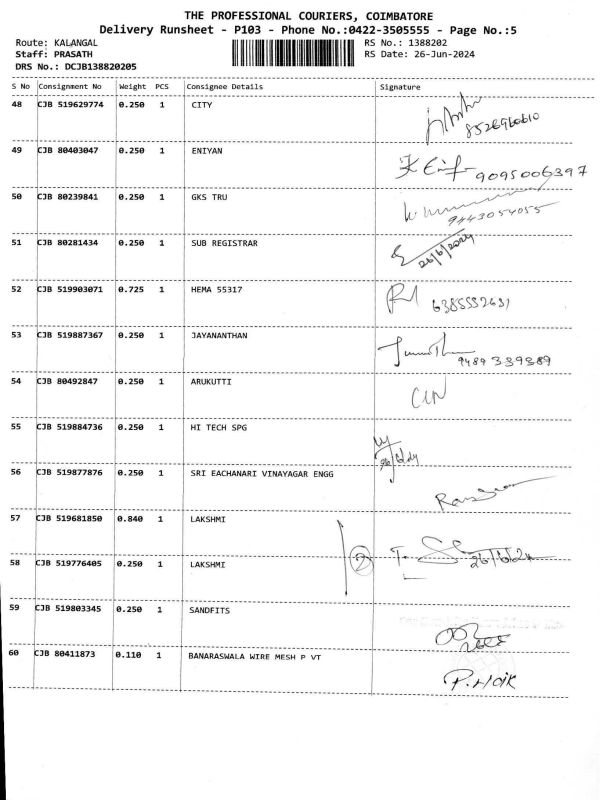 THE PROFESSIONAL COURIERS, COIMBATORE
Delivery Runsheet - P103 - Phone No.:0422-3505555 - Page No.:5
Route: KALANGAL RS No.: 1388202
Staff: PRASATH RS Date: 26-Jun-2024
DRS No.: DCJB138820205
S No Consignment No Weight PCS Consignee Details Signature
48 CJB 519629774 0.250 1 CITY
49 CJB 80403047 0.250 1 ENIYAN
9095006397
50 CJB 80239841 0.250 1 GKS TRU
9443054055
51 CJB 80281434 0.250 1 SUB REGISTRAR
26/6/2024
52 CJB 519903071 0.725 1 HEMA 55317
53 CJB 519887367 0.250 1 JAYANANTHAN
9489 339389
54 CJB 80492847 0.250 1 ARUKUTTI
55 CJB 519884736 0.250 1 HI TECH SPG
56 CJB 519877876 0.250 1 SRI EACHANARI VINAYAGAR ENGG
57 CJB 519681850 0.840 1 LAKSHMI
2
26/6/24
58 CJB 519776405 0.250 1 LAKSHMI
59 CJB 519803345 0.250 1 SANDFITS
60 CJB 80411873 0.110 1 BANARASWALA WIRE MESH P VT